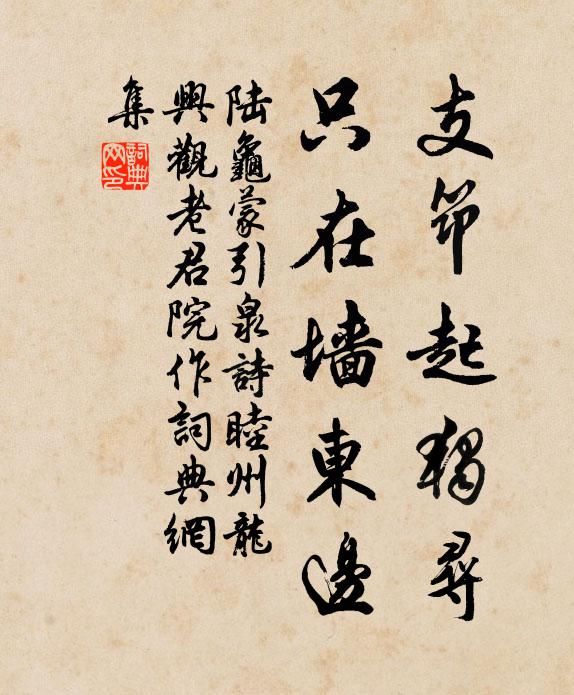 支筇起獨尋
只在墻東邊
陆龜蒙引泉詩睦州龍
興觀老君院作詞典網
集
詞典网印